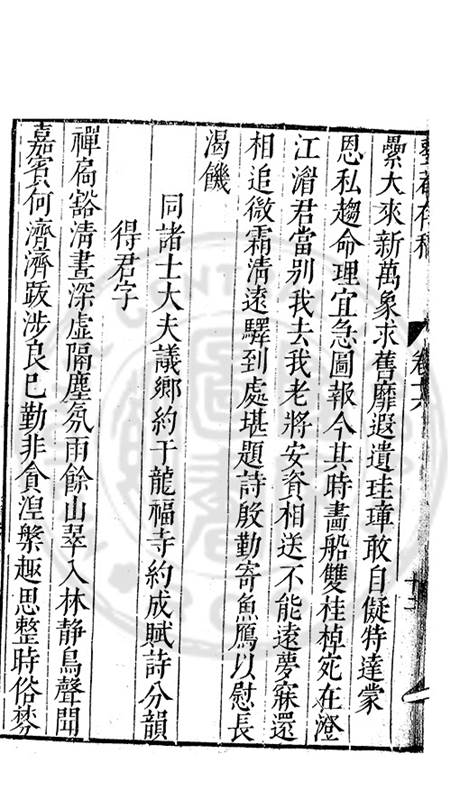 整菴存稿
卷十六
十二
纍大來新萬象求舊靡遐遺珪璋敢自儗特達蒙
恩私趨命理宜急圖報今其時畵船雙桂棹宛在澄
江湄君當别我去我老將安資相送不能遠夢寐還
相追微霜清遠驛到處堪題詩殷勤寄魚鴈以慰長
渴饑
同諸士大夫議鄉約于龍福寺約成賦詩分韻
得君字
禪扃豁清晝深虛隔塵氛雨餘山翠入林静鳥聲聞
嘉賓何濟濟䟦涉良已勤非貪湼槃趣思整時俗棼